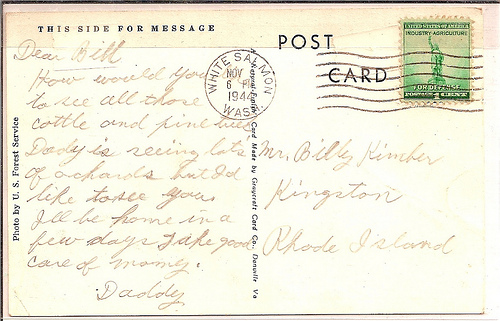 THIS SIDE FOR MESSAGE
Dear Bill
How would you
to see all those
cattle and pine trees
Dady is seeing lots
of orchards but I'd
like to see you.
I'll be home in a
few days Take good
care of momy.
Daddy
Photo by U. S. Forest Service
Card Made by Graycraft Card Co., Danville Va
POST
CARD
WHITE SALMON
NOV 9
6 PM
1944
WASH.
UNITED STATES OF AMERICA
INDUSTRY AGRICULTURE
FOR DEFENSE
POSTAGE 1 CENT
Mr. Billy Kimber
Kingston
Rhode Island